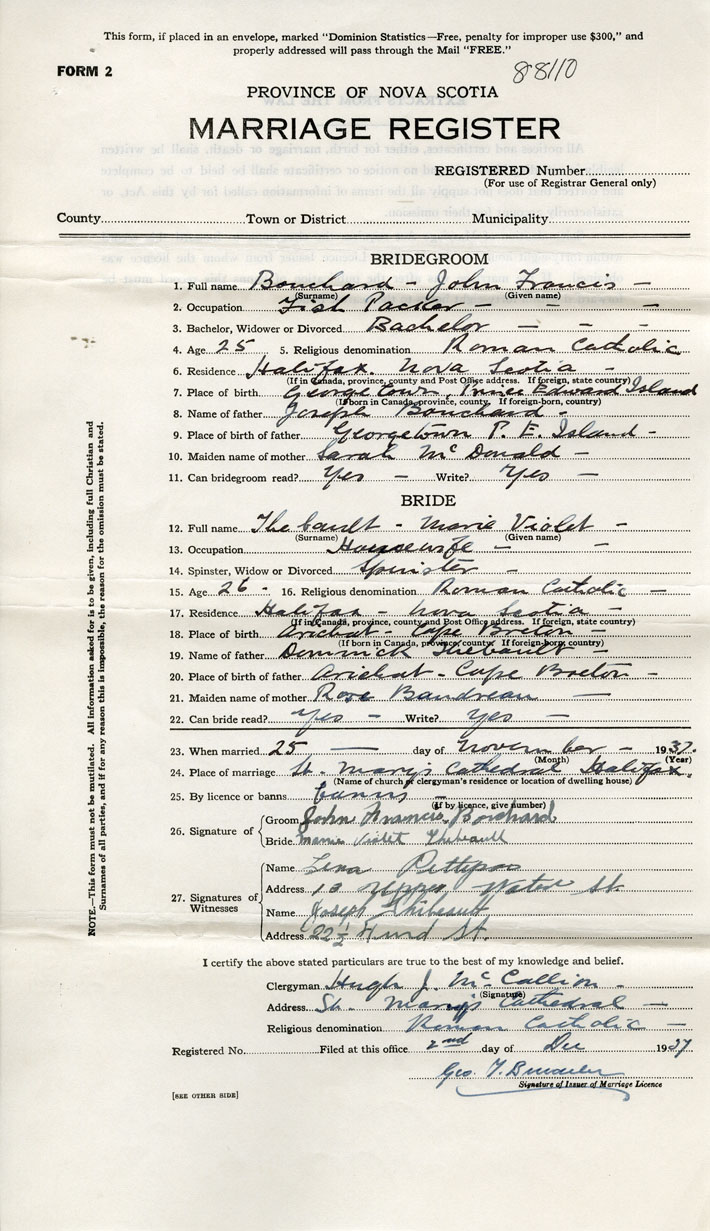 This form, if placed in an envelope, marked "Dominion Statistics—Free, penalty for improper use $300," and
properly addressed will pass through the Mail "FREE."
FORM 2
88110
PROVINCE OF NOVA SCOTIA
MARRIAGE REGISTER
REGISTERED Number
(For use of Registrar General only)
County Town or District Municipality
BRIDEGROOM
1. Full name Bouchard - John Francis -
(Surname) (Given name)
2. Occupation Fish Packer - - -
3. Bachelor, Widower or Divorced Bachelor - - -
4. Age 25 5. Religious denomination Roman Catholic
6. Residence Halifax. Nova Scotia -
(If in Canada, province, county and Post Office address. If foreign, state country)
7. Place of birth Georgetown, Prince Edward Island
(If born in Canada, province, county. If foreign-born, country)
8. Name of father Joseph Bouchard -
9. Place of birth of father Georgetown P. E. Island -
10. Maiden name of mother Sarah McDonald -
11. Can bridegroom read? Yes - Write? Yes -
BRIDE
12. Full name Thebault - Marie Violet -
(Surname) (Given name)
13. Occupation Housewife - -
14. Spinster, Widow or Divorced Spinster -
15. Age 26 - 16. Religious denomination Roman Catholic -
17. Residence Halifax - Nova Scotia -
(If in Canada, province, county and Post Office address. If foreign, state country)
18. Place of birth Arichat - Cape Breton -
(If born in Canada, province, county. If foreign-born, country)
19. Name of father Dominick Thebault -
20. Place of birth of father Arichat - Cape Breton
21. Maiden name of mother Rose Baudreau -
22. Can bride read? Yes - Write? Yes -
23. When married 25 - day of November - 1937.
(Month) (Year)
24. Place of marriage St. Mary's Cathedral Halifax.
(Name of church or clergyman's residence or location of dwelling house)
25. By licence or banns banns -
(If by licence, give number)
26. Signature of
Groom John Francis Bouchard
Bride Marie Violet Thebeault
27. Signatures of Witnesses
Name Lena Pettipas
Address 13 Upper Water St.
Name Joseph Thibeault
Address 22½ St.
I certify the above stated particulars are true to the best of my knowledge and belief.
Clergyman Hugh J. McCallion -
(Signature)
Address St. Mary's Cathedral -
Religious denomination Roman Catholic -
Registered No. Filed at this office 2nd day of Dec 1937
Geo. T.
Signature of Issuer of Marriage Licence
[SEE OTHER SIDE]
NOTE.—This form must not be mutilated. All information asked for is to be given, including full Christian and
Surnames of all parties, and if for any reason this is impossible, the reason for the omission must be stated.